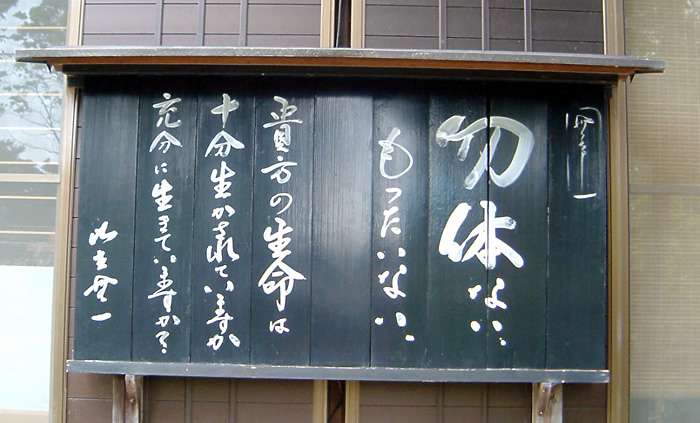 勿体ない
もったいない
貴方の生命は
十分生かされていますか
充分に生きていますか?